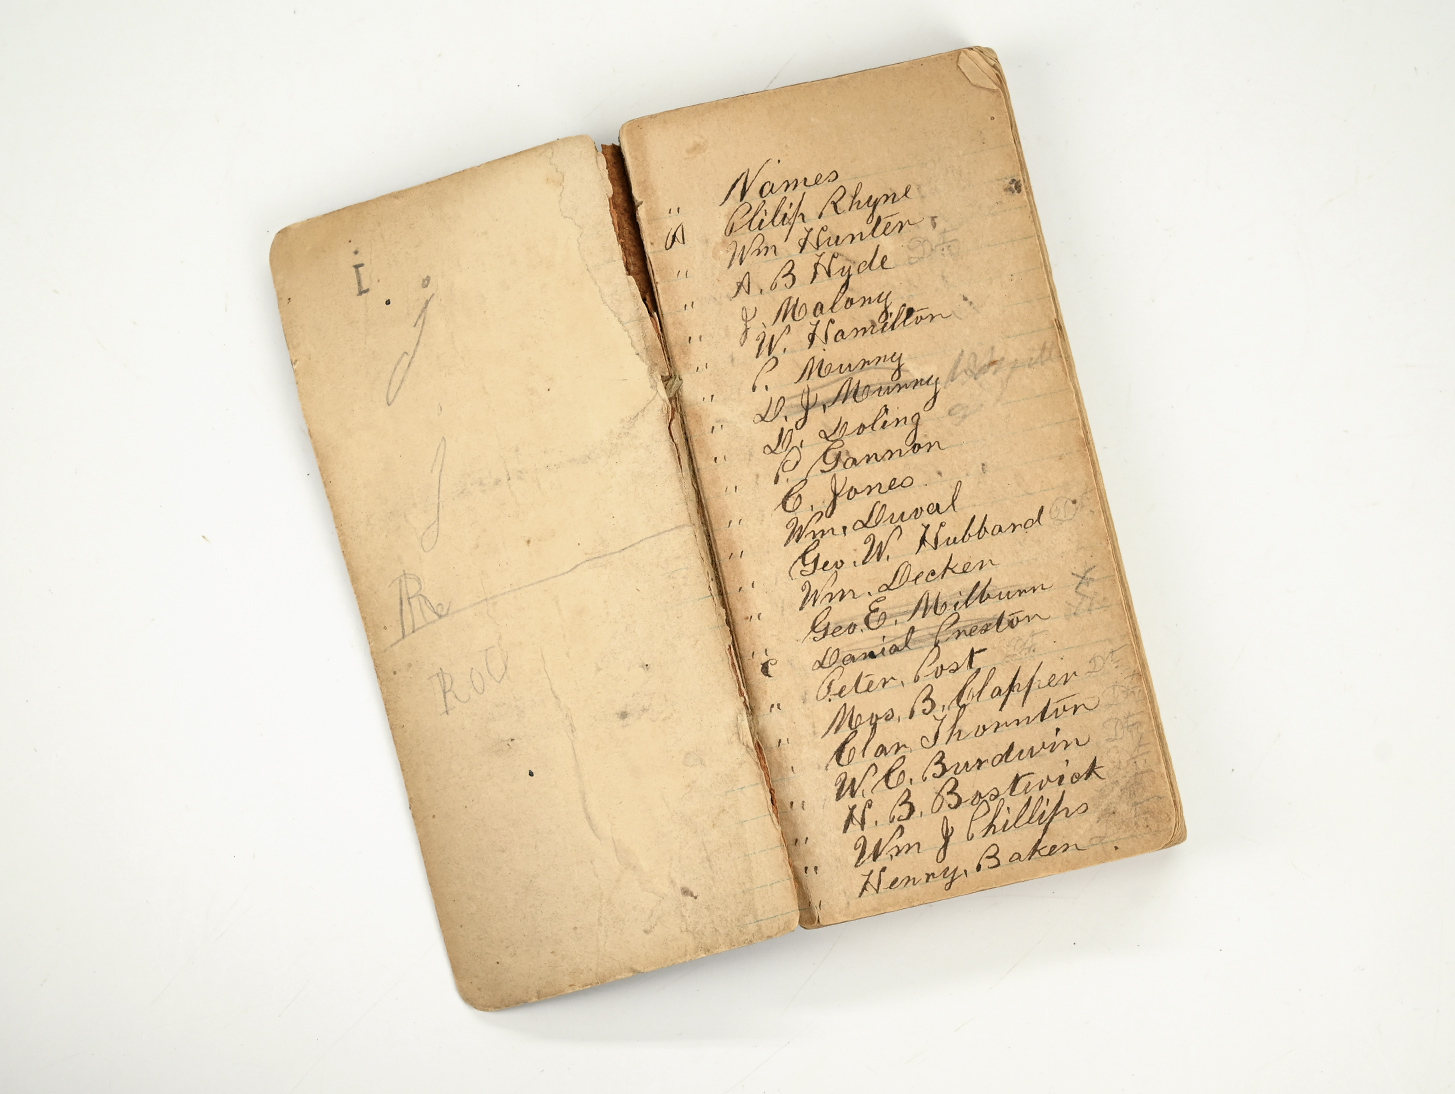 I. j
j
R Re
Roll
Names
" Philip Rhyne
A Wm Hunter
" A. B Hyde Dto
" J Malony
" W. Hamilton
" P. Murry
" D. J. Murry
" D. Doling
" P Gannon
" C. Jones
" Wm. Duval
" Geo. W. Hubbard
" Wm. Decken
" Geo. E. Milburn x
" Danial Preston
c Peter. Post
" Mos. B. Clapper Dt
" Clar. Thornton Dt
" W. C. Burdwin Dt
" H. B. Bostwick
" Wm J Phillips
" Henry. Baken